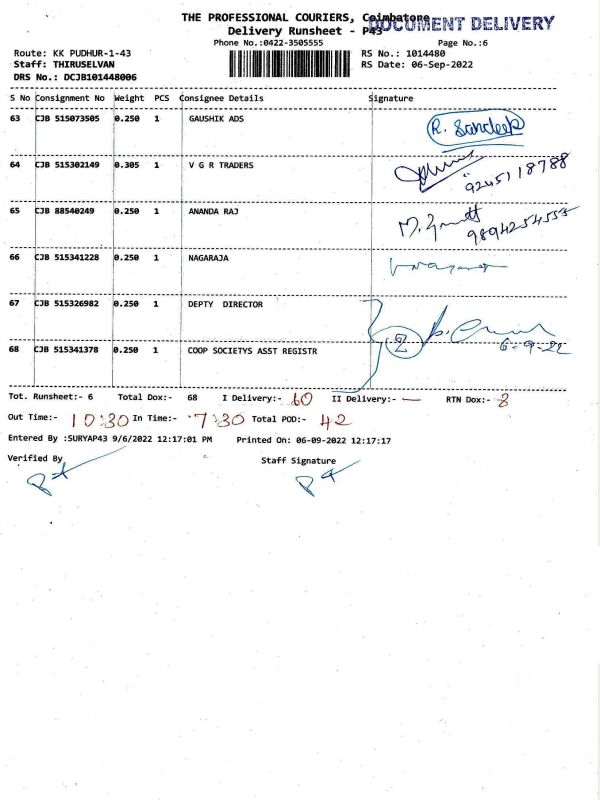 THE PROFESSIONAL COURIERS, Coimbatore
DOCUMENT DELIVERY
Delivery Runsheet - P43
Phone No.:0422-3505555 Page No.:6
Route: KK PUDHUR-1-43 RS No.: 1014480
Staff: THIRUSELVAN RS Date: 06-Sep-2022
DRS No.: DCJB101448006
S No Consignment No Weight PCS Consignee Details Signature
63 CJB 515073505 0.250 1 GAUSHIK ADS R. Sandeep
64 CJB 515302149 0.305 1 V G R TRADERS
9245118788
65 CJB 88540249 0.250 1 ANANDA RAJ
9894254555
66 CJB 515341228 0.250 1 NAGARAJA
67 CJB 515326982 0.250 1 DEPTY DIRECTOR
2 6-9-22
68 CJB 515341378 0.250 1 COOP SOCIETYS ASST REGISTR
Tot. Runsheet:- 6 Total Dox:- 68 I Delivery:- 60 II Delivery:- — RTN Dox:- 8
Out Time:- 10:30 In Time:- 7:30 Total POD:- 42
Entered By :SURYAP43 9/6/2022 12:17:01 PM Printed On: 06-09-2022 12:17:17
Verified By Staff Signature